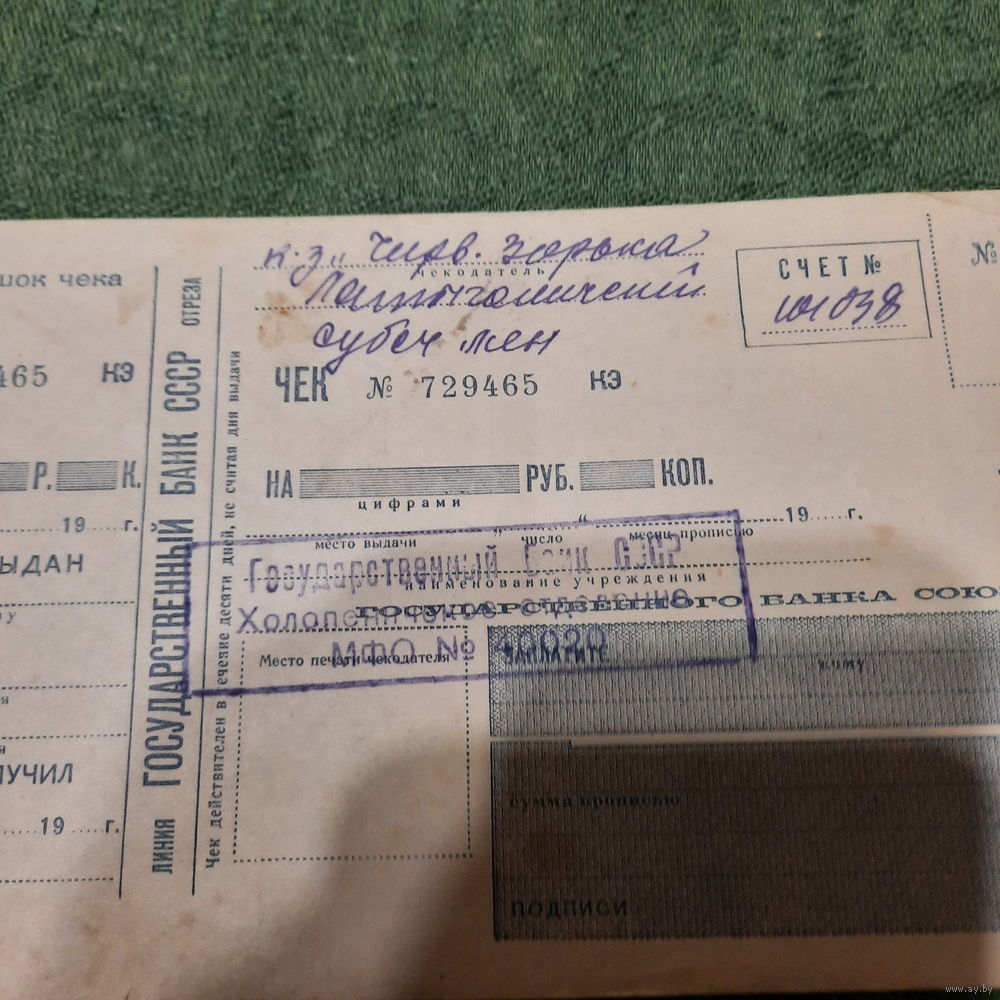 к-з „Чирв. зорька
чекодатель
СЧЕТ №
№
шок чека
465 КЭ
ЧЕК № 729465 КЭ
Р. К.
НА РУБ. КОП.
цифрами
19 г.
„ “ 19 г.
место выдачи число месяц прописью
ЫДАН
Государственный Банк СССР
наименование учреждения
Холопеническое отделение
ГОСУДАРСТВЕННОГО БАНКА СОЮ
МФО №
Место печати чекодателя
ЗАПЛАТИТЕ кому
ЛУЧИЛ
19 г.
сумма прописью
ПОДПИСИ
ЛИНИЯ ГОСУДАРСТВЕННЫЙ БАНК СССР ОТРЕЗА
Чек действителен в течение десяти дней, не считая дня выдачи
www.ay.by